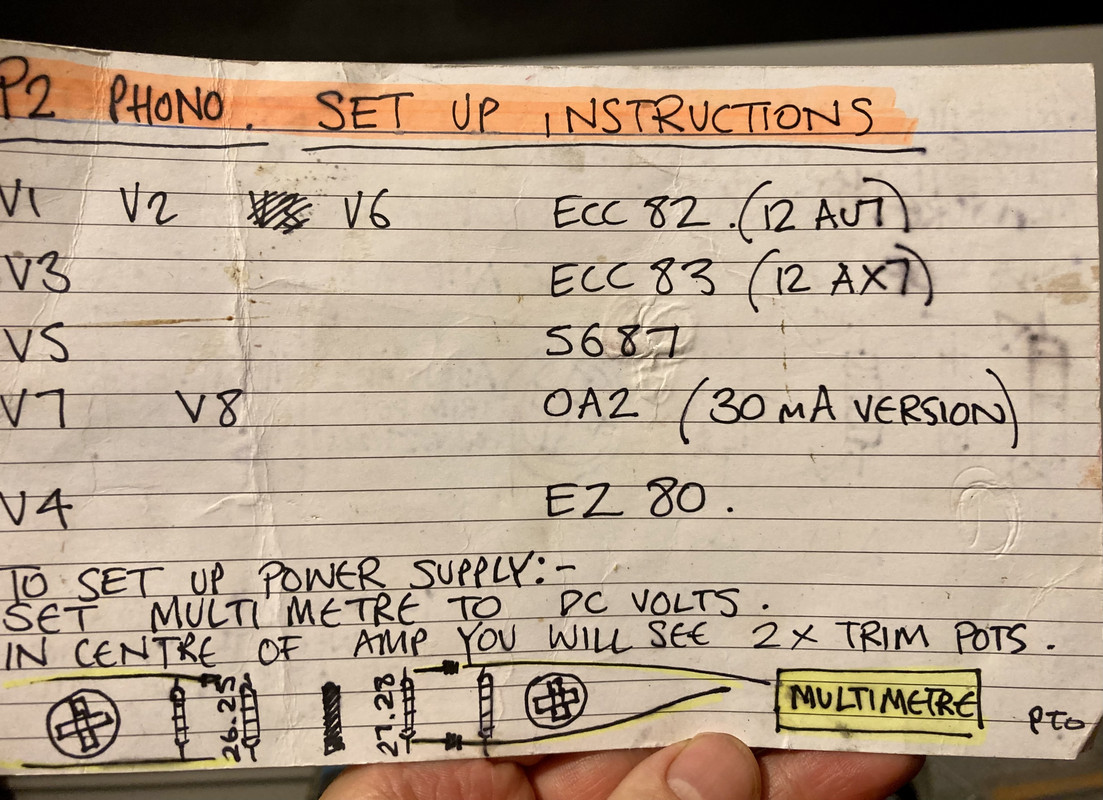 P2 PHONO. SET UP INSTRUCTIONS
V1 V2 V6 ECC 82. (12 AU7)
V3 ECC 83 (12 AX7)
V5 5687
V7 V8 OA2 (30 MA VERSION)
V4 EZ 80.
TO SET UP POWER SUPPLY:-
SET MULTI METRE TO DC VOLTS.
IN CENTRE OF AMP YOU WILL SEE 2X TRIM POTS.
26.25 27.28 MULTIMETRE PTO